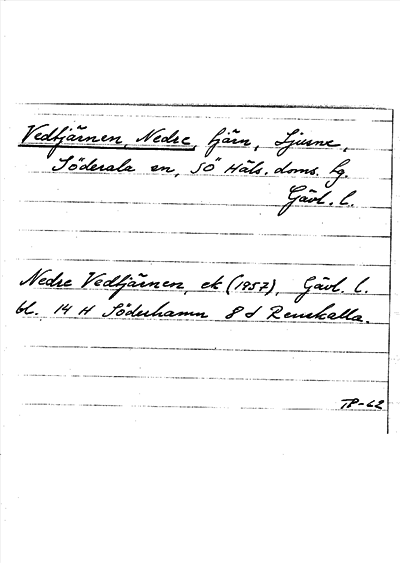 Vedtjärnen, Nedre, tjärn, Ljusne,
Söderala sn, SÖ Häls. doms. tg.
Gävl. l.
Nedre Vedtjärnen, ek (1957), Gävl. l.
bl. 14 H Söderhamn 8 d Renskalla.
TP-62